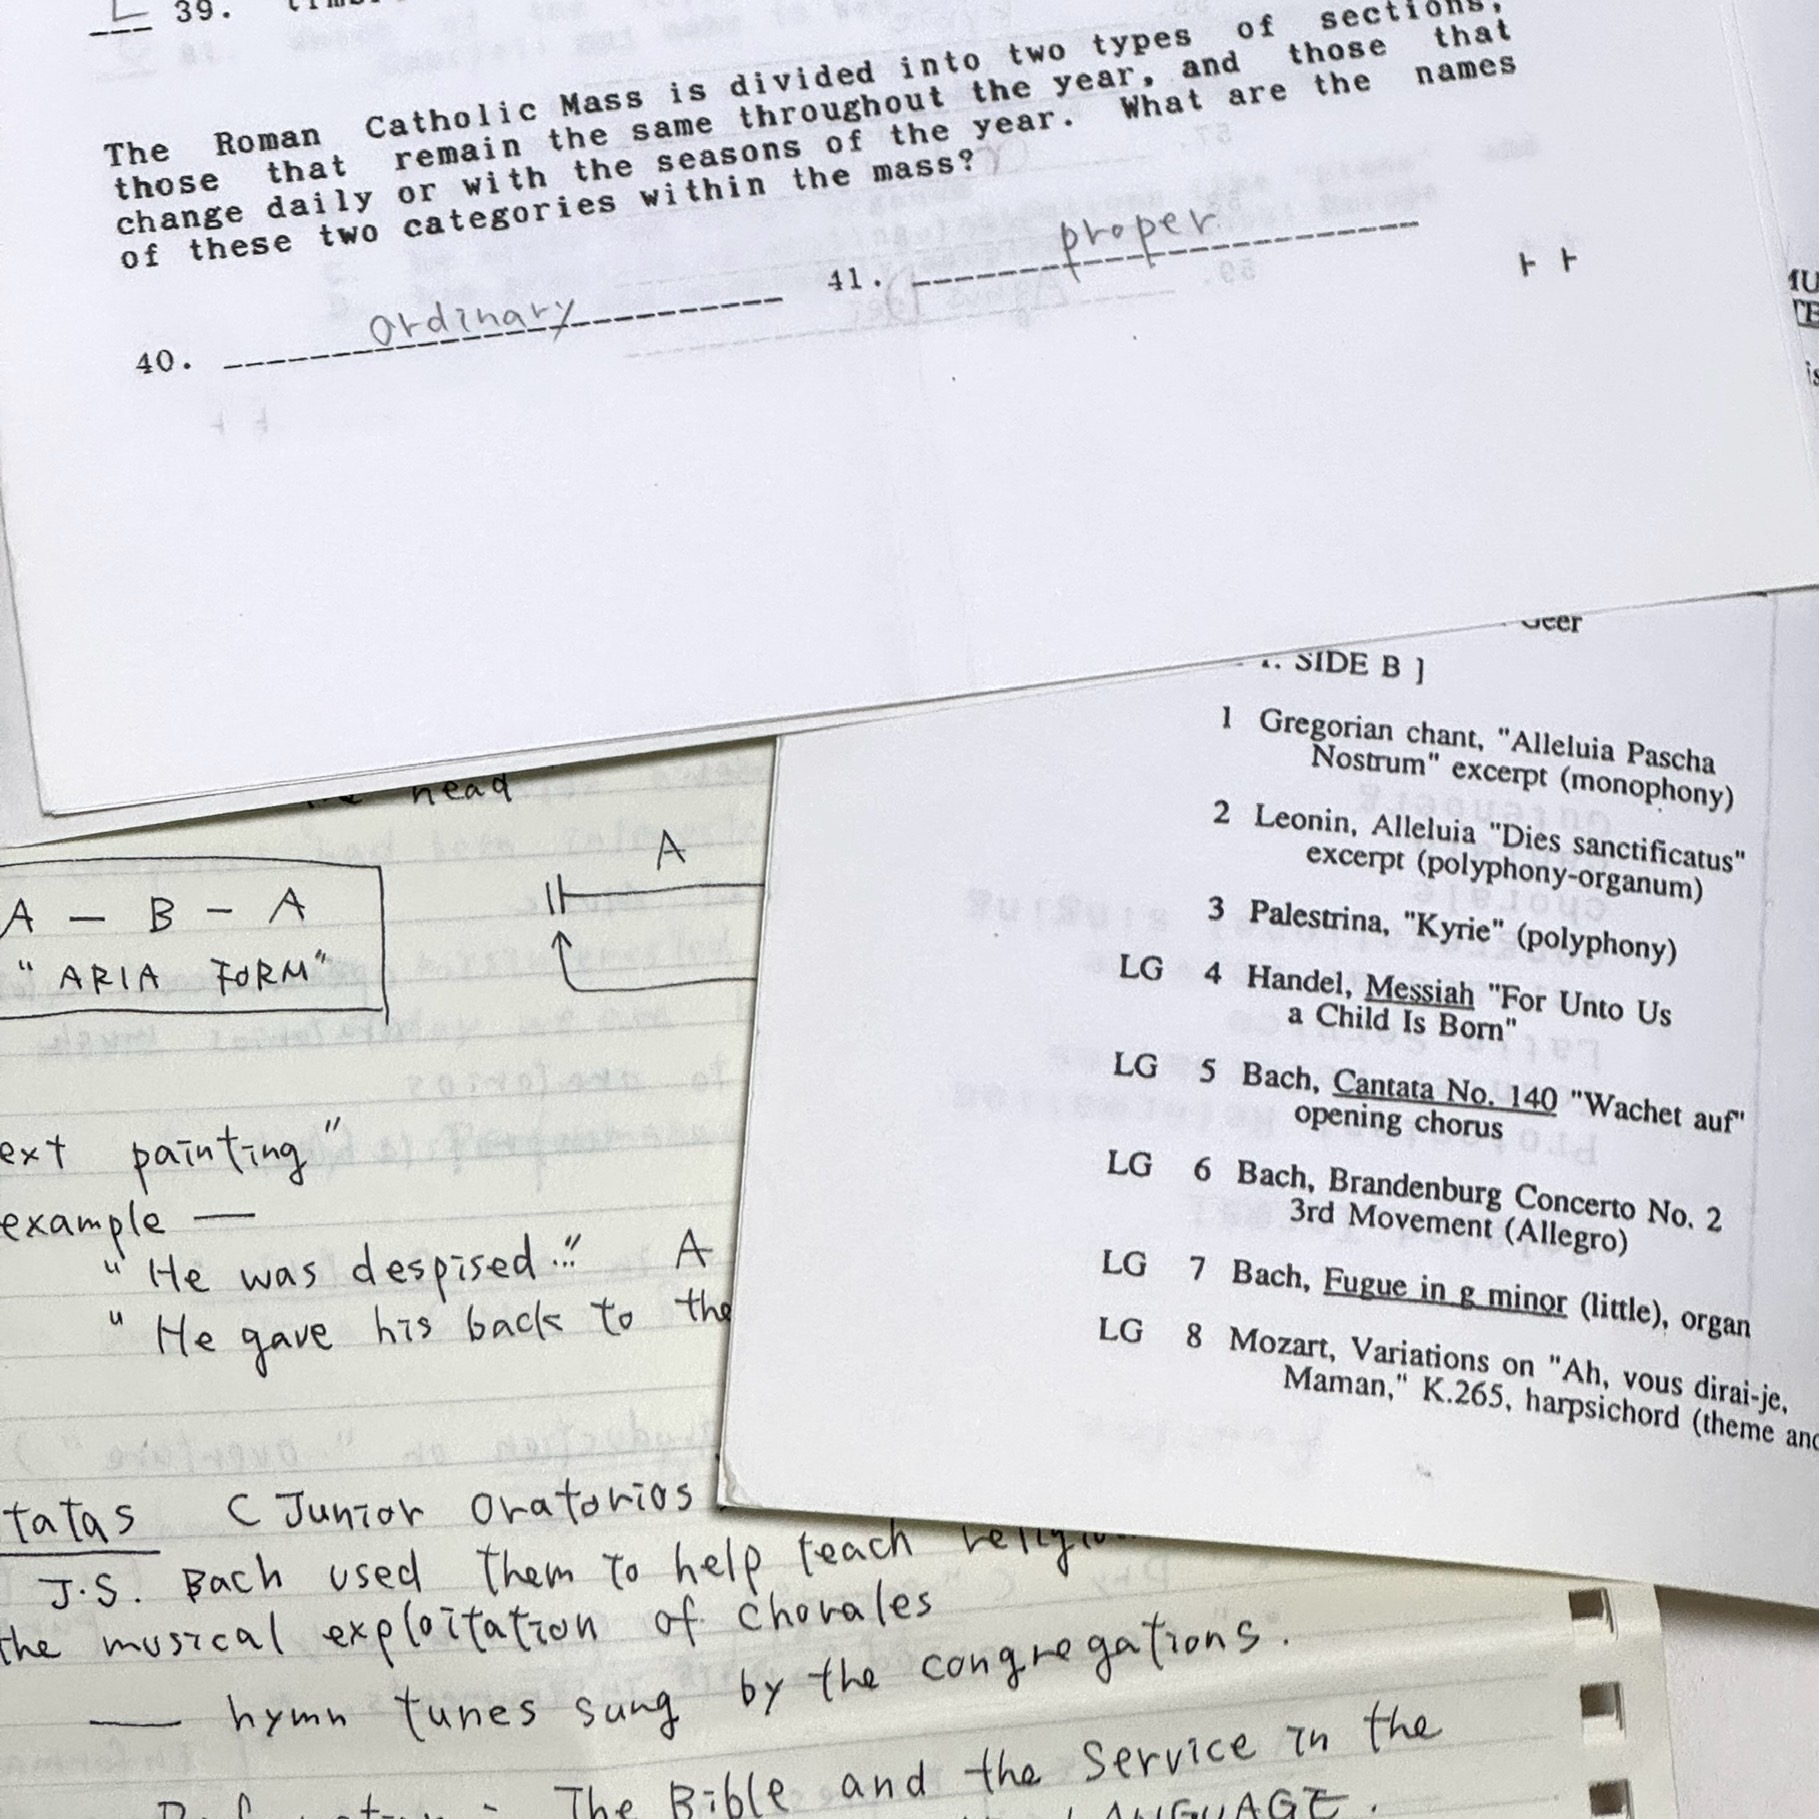 L 39.
The Roman Catholic Mass is divided into two types of sections,
those that remain the same throughout the year, and those that
change daily or with the seasons of the year. What are the names
of these two categories within the mass?
40. ordinary 41. proper
SIDE B ]
1 Gregorian chant, "Alleluia Pascha
Nostrum" excerpt (monophony)
2 Leonin, Alleluia "Dies sanctificatus"
excerpt (polyphony-organum)
3 Palestrina, "Kyrie" (polyphony)
LG 4 Handel, Messiah "For Unto Us
a Child Is Born"
LG 5 Bach, Cantata No. 140 "Wachet auf"
opening chorus
LG 6 Bach, Brandenburg Concerto No. 2
3rd Movement (Allegro)
LG 7 Bach, Fugue in g minor (little), organ
LG 8 Mozart, Variations on "Ah, vous dirai-je,
Maman," K.265, harpsichord (theme and
head
A — B — A
"ARIA FORM"
A
ext painting"
example —
"He was despised.." A
"He gave his back to the
tatas ( Junior Oratorios
J.S. Bach used them to help teach
the musical exploitation of chorales
— hymn tunes sung by the congregations.
The Bible and the Service in the
LANGUAGE.